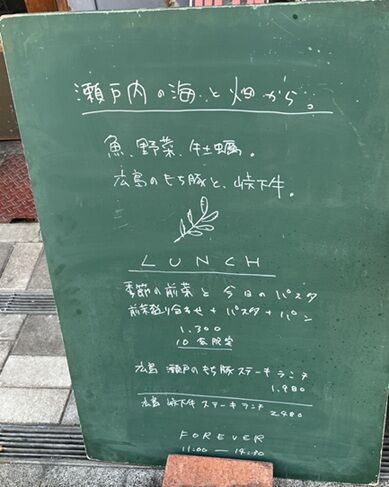 瀬戸内の海と畑から。
魚、野菜、牡蠣。
広島のもち豚と、峠下牛。
LUNCH
季節の前菜と今日のパスタ
前菜盛り合わせ+パスタ+パン
1,300
10食限定
広島 瀬戸のもち豚ステーキランチ
1,980
広島 峠下牛ステーキランチ
2,480
FOREVER
11:00 — 14:00